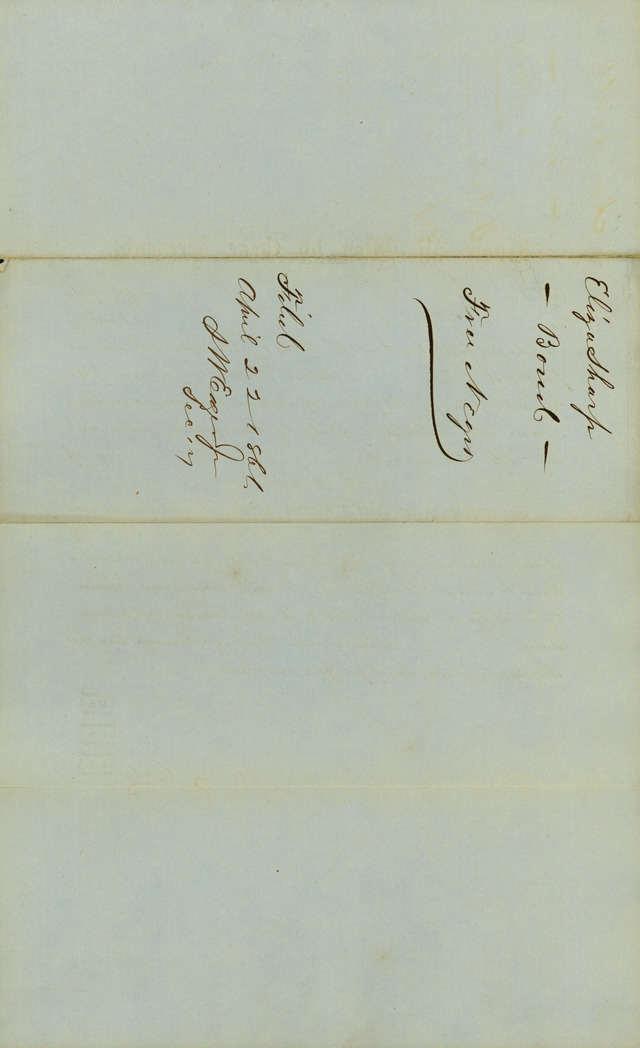 Eliza Sharp
— Bond —
Free Negro
Filed
April 22 1861
Sec'y